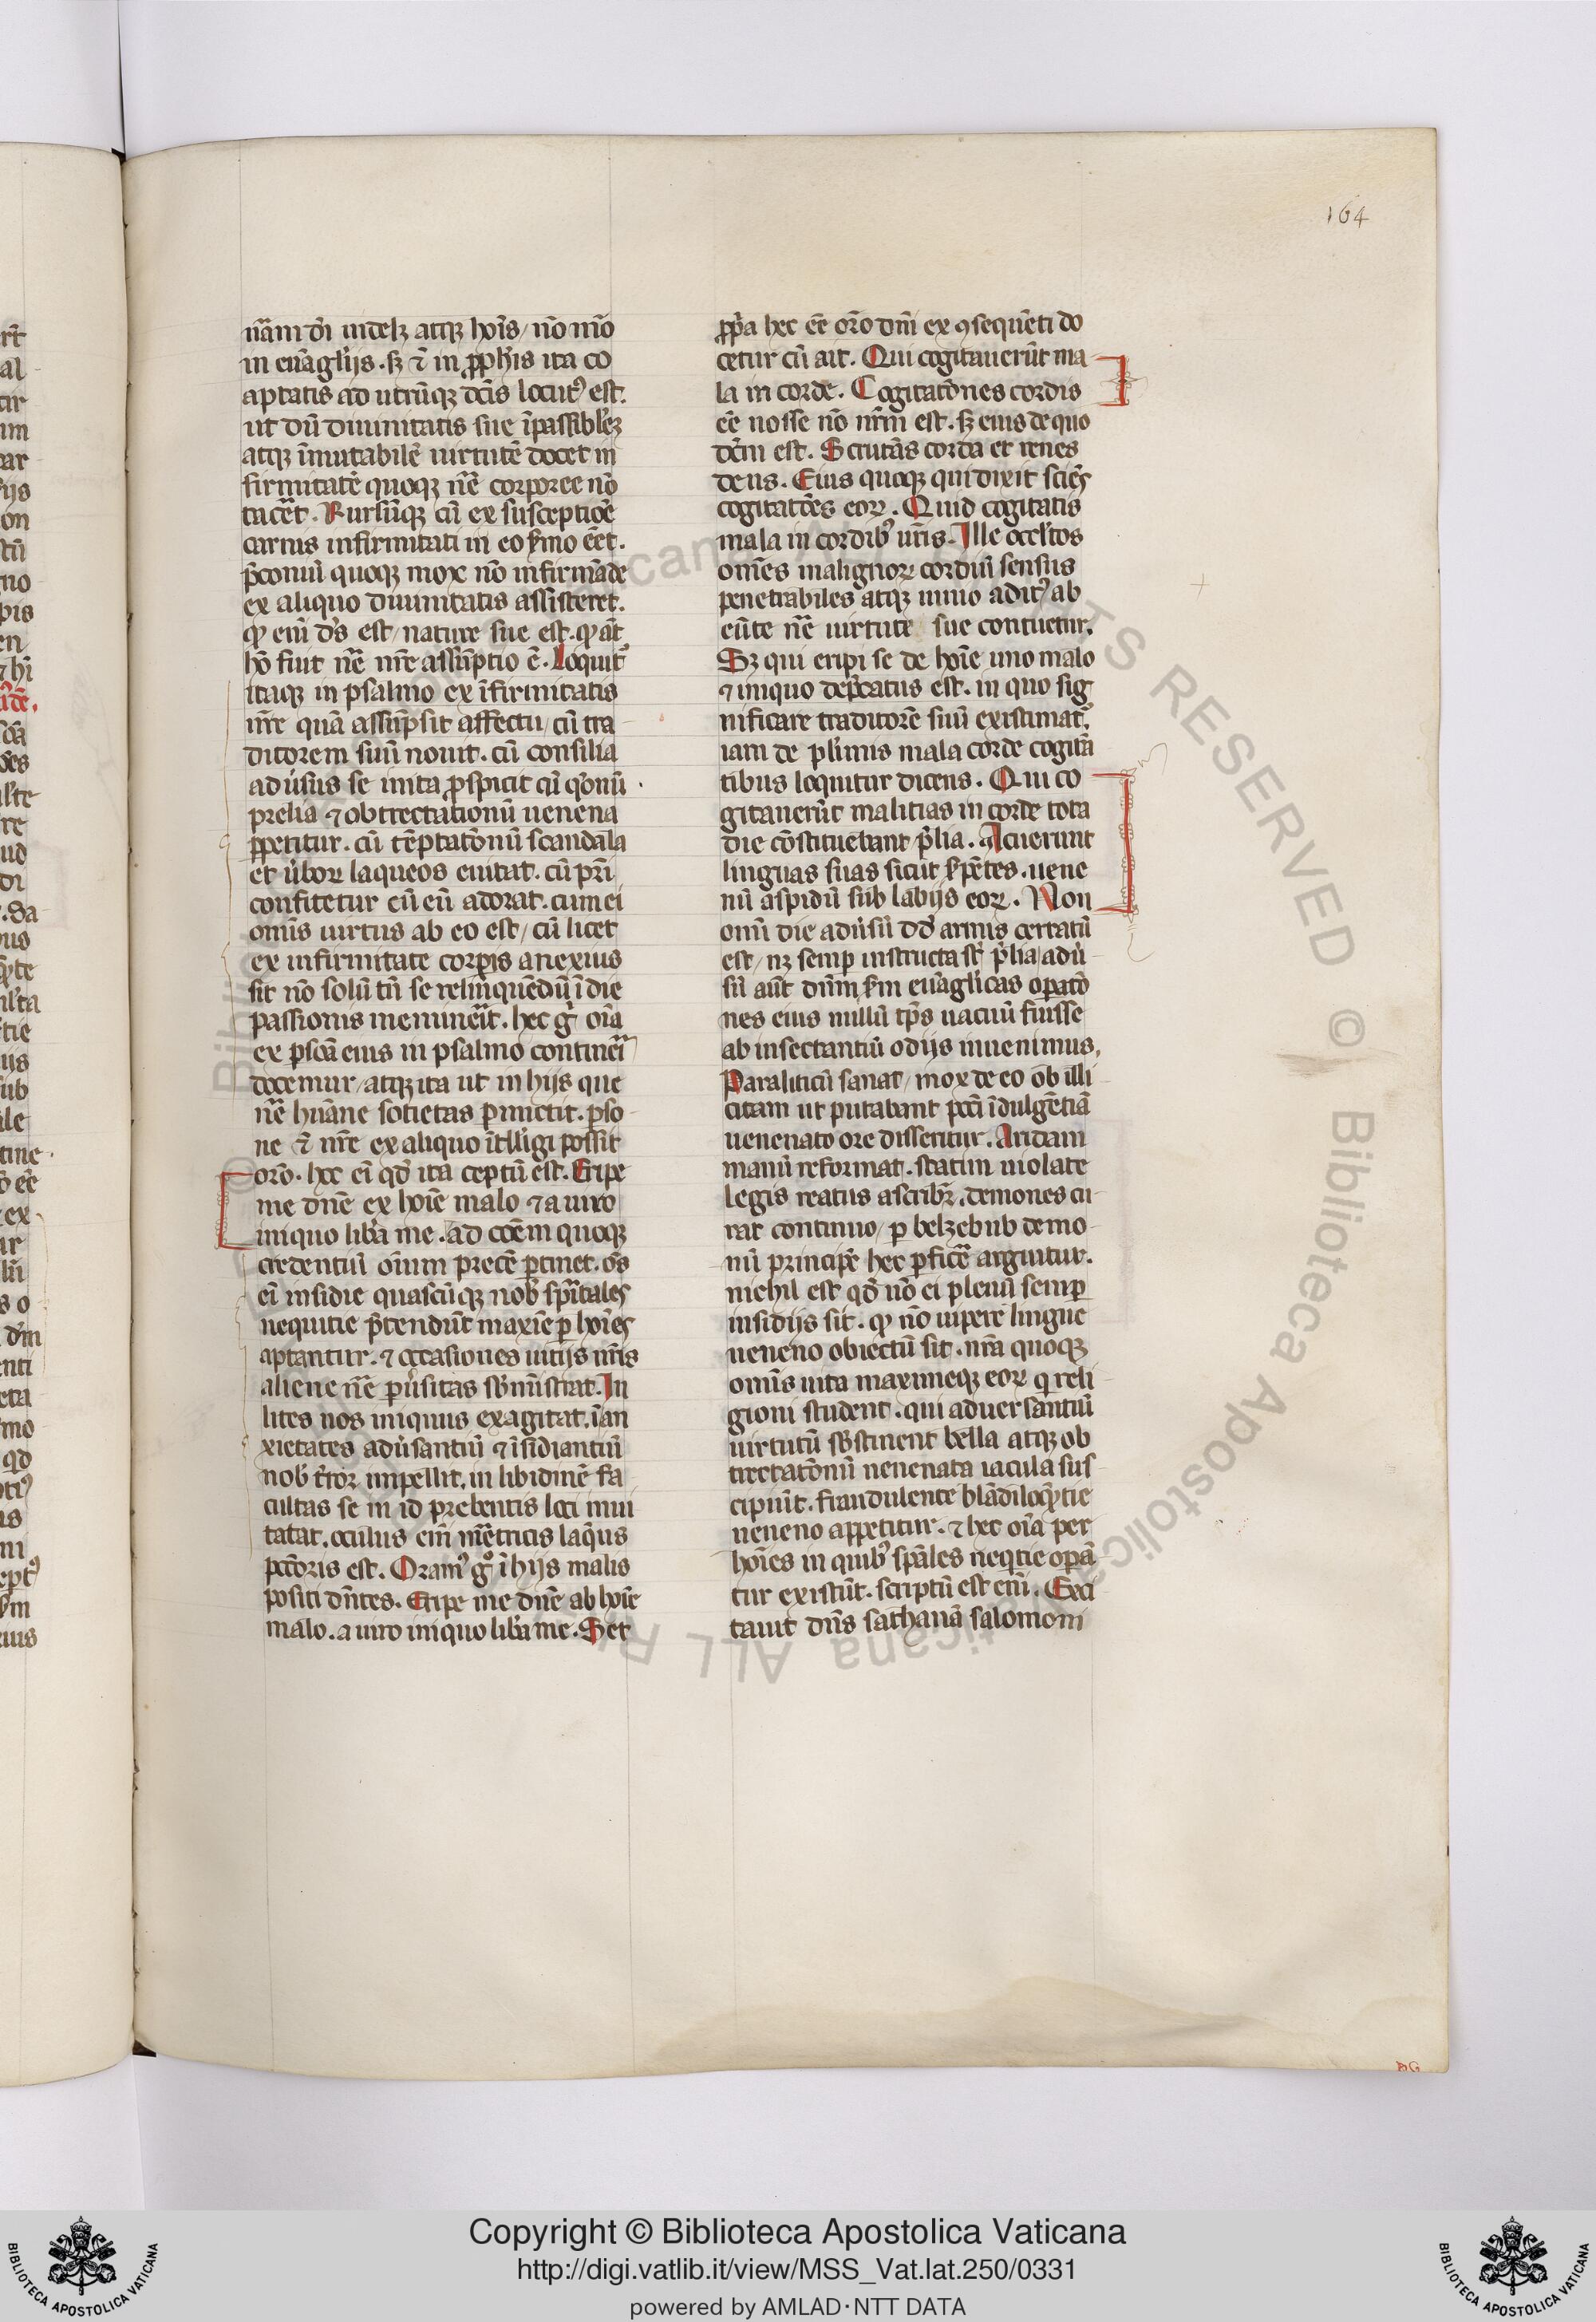 164
nãm dī uidelꝫ atqꝫ hoīs / nō mō
in euãgliis . sꝫ ⁊ in ꝓphīs ita co
aptatis ad utrūqꝫ dcīs locutꝰ est.
ut dū diuinitatis sue ĩpassiblēꝫ
atqꝫ ĩmutabilē uirtutē docet in
firmitatē quoqꝫ nr̄e corporee nō
tacēt . Rursūqꝫ cū ex susceptiōe
carnis infirmitati in eo s̄mo eēt .
p̄conui quoqꝫ mox nō infirmãde
ex aliquo diuinitatis assisteret.
qꝫ eni ds̄ est / nature sue est . qꝫ aūt
hō fuit nr̄e assūptio ē . Loquitᷣ
itaqꝫ in psalmo ex ĩfirmitatis
nr̄e quã assūpsit affectu / cū tra
ditorem suū nouit . cū consilia
aduersus se inita ꝓspicit cū qͦonū
prelia ⁊ obtrectationū uenena
ꝑpetitur . cū tēptatōnū scandala
et ũboꝝ laqueos euitat . cū pr̄i
confitetur cū eū adorat . cum ei
omīs uirtus ab eo est / cū licet
ex infirmitate corꝑis anexius
sit nō solū tn̄ se relinquēdū ĩ die
passionis meminĩt . hec gͦ oīa
ex ꝑsōa eius in psalmo continēi
docemur / atqꝫ ita ut in hijs que
nr̄e huãne societas ꝑmictit . ꝑso
ne ⁊ nr̄e ex aliquo ĩtlĩgi possit
orō . hec ei qd̄ ita ceptū est . Eripe
me dn̄e ex hoīe malo ⁊ a uiro
iniquo libãa me . ad cōem quoqꝫ
credentiū oīum precē ꝑtinet . os̄
ei insidie quascūqꝫ nob̄ spīrales
nequitie p̄tendūt maxīe ꝑ hoīes
aptantur . ⁊ occasiones uitijs nr̄is
aliene nr̄e ꝑũsitas sbmīstrat . In
lites nos iniquus exagitat . ĩ an
xietates adũsantiū ⁊ ĩsidiantiū
nob̄ t̄roꝛ impellit . in libidinē fa
cultas se in id prebentis loci inui
tatat . oculus em̄ mēticis laq̄us
pccōris est . Oramꝰ gͦ ĩ hijs malis
positi dn̄tes . Eripe me dn̄e ab hoīe
malo . a uiro iniquo libãa me . Set
ꝓpa hec eē orō dn̄i ex ꝯsequēti do
cetur cū ait . Qui cogitauerūt ma
la in corde . Cogitatōnes cordis
eē nosse nō nr̄m est . sꝫ eius de quo
dcm̄ est . Scrutãs corda et renes
deus . Eius quoqꝫ qui dixit sciēs
cogitatōes eoꝝ . Quid cogitatis
mala in cordibꝰ ur̄is . Ille occltos
omēs malignoꝝ cordiū sensus
penetrabiles atqꝫ inuio aditꝰ ab
eūte nr̄e uirtute sue contuetur,
Sꝫ qui eripi se de hoīe uno malo
⁊ iniquo dep̄catus est . in quo sig
nificare traditorē suū existimatᷣ .
iam de plīmis mala corde cogitã
tibus loquitur dicens . Qui co
gitauerūt malitias in corde tota
die cōstituebant p̄lia . Acuerunt
linguas suas sicut s̄pētes . uene
nū aspidū sub labijs eoꝝ . Non
omī die adũsū dd̄ armis certatū
est / nꝫ semꝑ instructa st̄ p̄lia / adũ
sū aūt dn̄m s̄m euãglicas oꝑatō
nes eius nullū tp̄s uacuū fuisse
ab insectantiū odijs inuenimus,
Paraliticū sanat / mox de eo ob illi
citam ut putabant pccī ĩdulgētiã
uenenato ore disseritur . Aridam
manū reformat . statim uiolate
legis reatus ascribr̄ . demones cu
rat continuo / ꝑ belzebub demo
nū principē hec ꝑficē arguitur .
nichil est qd̄ nō ei plenū semꝑ
insidijs sit . qꝫ nō uipere lingue
ueneno obiectū sit . nr̄a quoqꝫ
omīs uita maximeqꝫ eoꝝ q̄ reli
gioni student . qui aduersantiū
uirtutū sb̄stinent bella atqꝫ ob
trectatōnū uenenata iacula sus
cipiūt . fraudulente blãdiloq̄tie
ueneno appetitur . ⁊ hec oīa per
hoīes in quibꝰ spãles neq̄tie oꝑã
tur existūt . scriptū est eni . Exci
tauit dn̄s sathanã salomoni
Copyright © Biblioteca Apostolica Vaticana
http://digi.vatlib.it/view/MSS_Vat.lat.250/0331
powered by AMLAD·NTT DATA
BIBLIOTECA APOSTOLICA VATICANA
BIBLIOTECA APOSTOLICA VATICANA